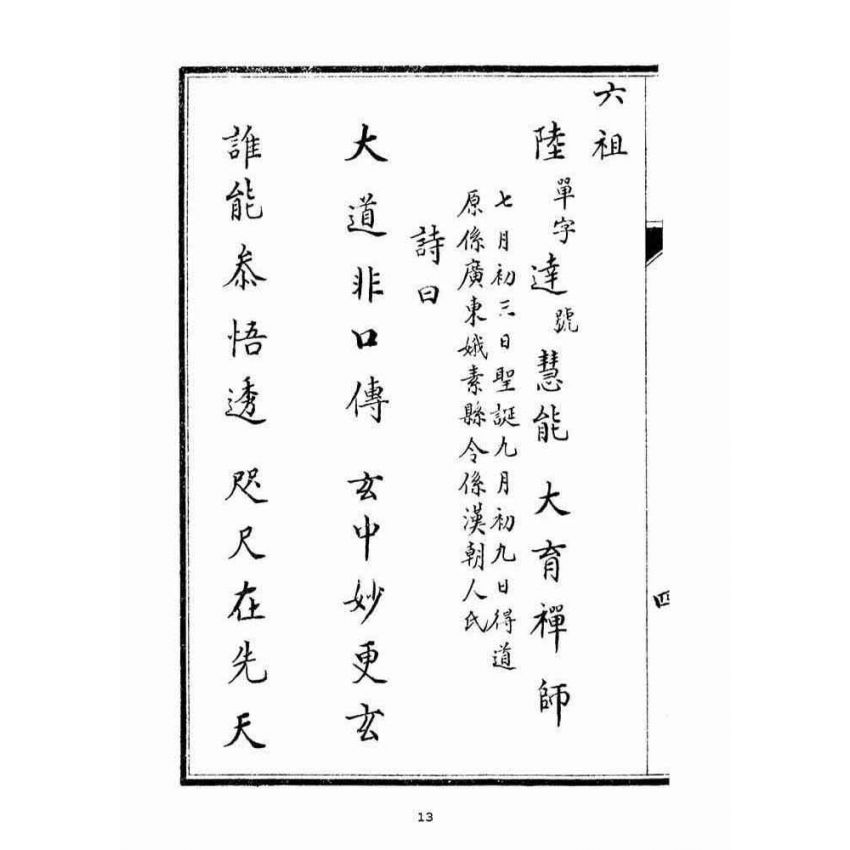 六祖
陸單字達號慧能大育禪師
七月初三日聖誕九月初九日得道
原係廣東娥素縣令係漢朝人氏
詩曰
大道非口傳 玄中妙更玄
誰能叅悟透 咫尺在先天
四
13